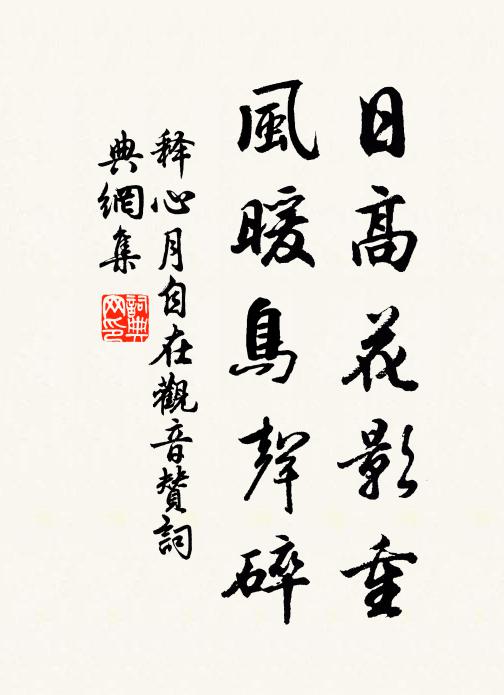 日高花影重
風暖鳥聲碎
释心月自在觀音賛詞
典網集
詞典
网印